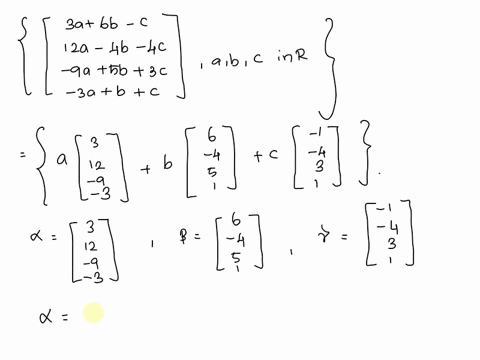 { [ 3a + 6b - c
12a - 4b - 4c
-9a + 5b + 3c
-3a + b + c ] , a, b, c in R }
= { a [ 3 12 -9 -3 ] + b [ 6 -4 5 1 ] + c [ -1 -4 3 1 ] } .
α = [ 3 12 -9 -3 ] , β = [ 6 -4 5 1 ] , γ = [ -1 -4 3 1 ]
α =